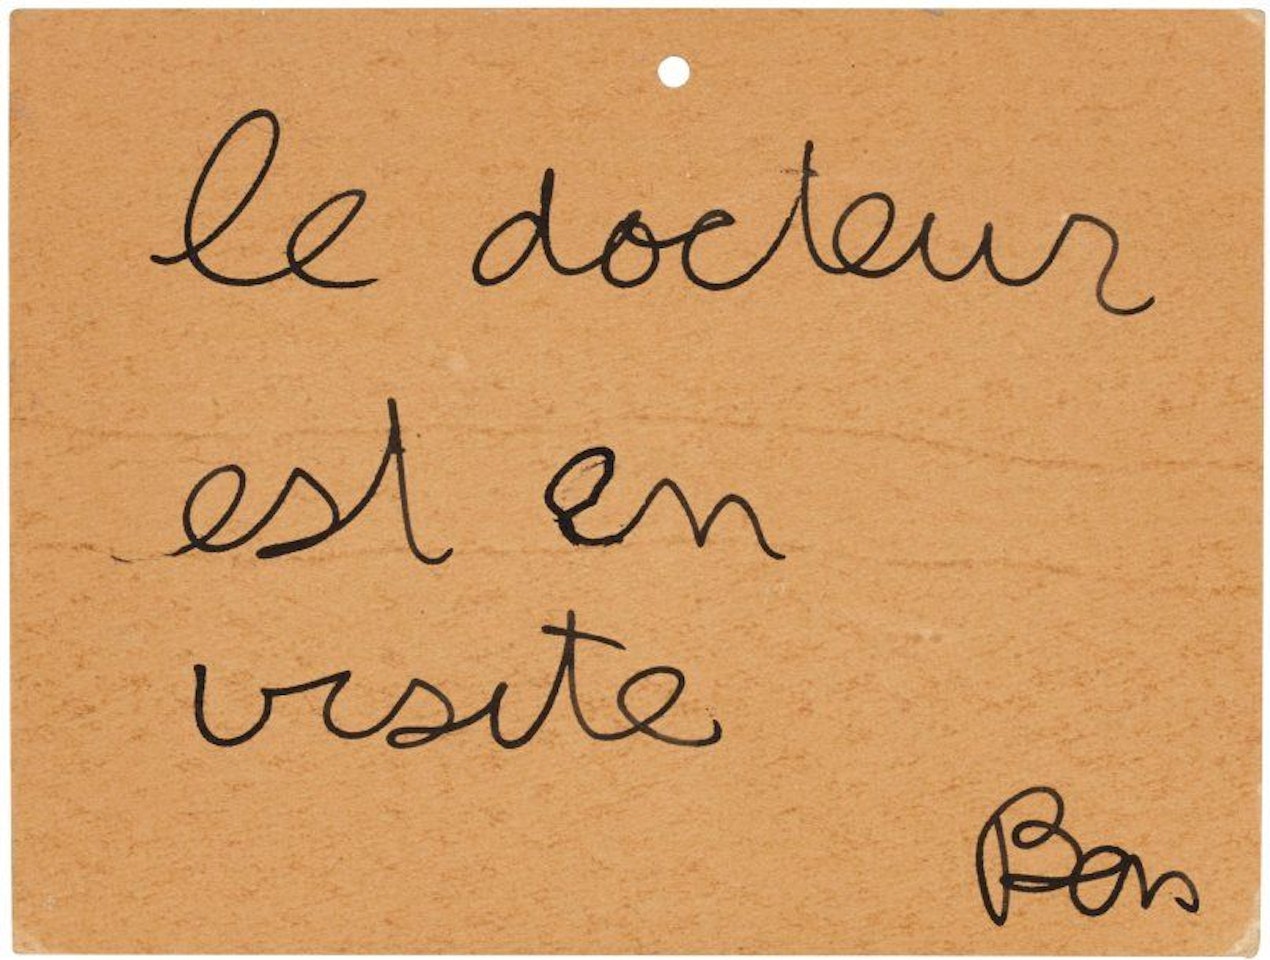 le docteur
est en
visite
Ben